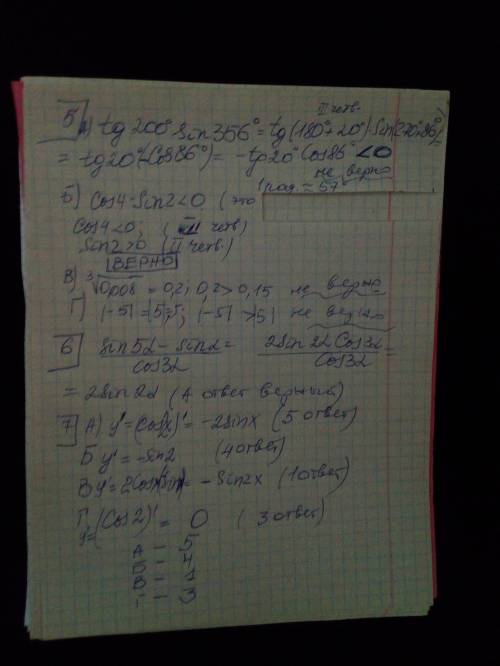 III четв.
5 А) tg 200° sin 356° = tg(180°+20°) sin(270°+86°)=
= tg20°(-cos86°) = -tg20° cos86° < 0
не верно
Б) cos4·sin2<0. (это 1рад. ≈ 57
cos4<0, (III четв.)
sin2>0 (II четв.)
ВЕРНО
В) ³√0,008 = 0,2; 0,2 > 0,15 не верно
Г) |-5|=|5|=5; |-5| >|5| не верно
6 sin5α - sinα / cos3α = 2sin2α cos3α / cos3α =
= 2sin2α (А ответ верный)
7 А) y' = = -2sinx (5 ответ)
Б y' = -sin2 (4 ответ)
В y' = = -sin2x (1 ответ)
Г y=(cos2)' = 0 (3 ответ)
А - 5
Б - 4
В - 1
Г - 3